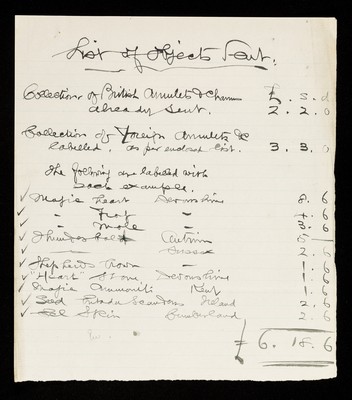 List of objects Sent.
Collection of British Amulets & Charms £. s. d
already sent. 2. 2. 0
Collection of Foreign Amulets &c
labelled, as per enclosed list. 3. 3. 0
The following are labelled with
each example.
✓ Magic heart Devonshire 8. 6
✓ " Frog " 4. 6
✓ " Mole " 3. 6
✓ Thunderbolt Antrim 5 —
Sussex 2. 6
✓ Shepherds Crown " 1. 6
✓ "Heart" Stone Devonshire 1. 6
✓ Magic Ammonite Kent 1. 6
✓ Seed Ireland 2. 6
✓ Eel Skin Cumberland 2. 6
£ 6. 18. 6